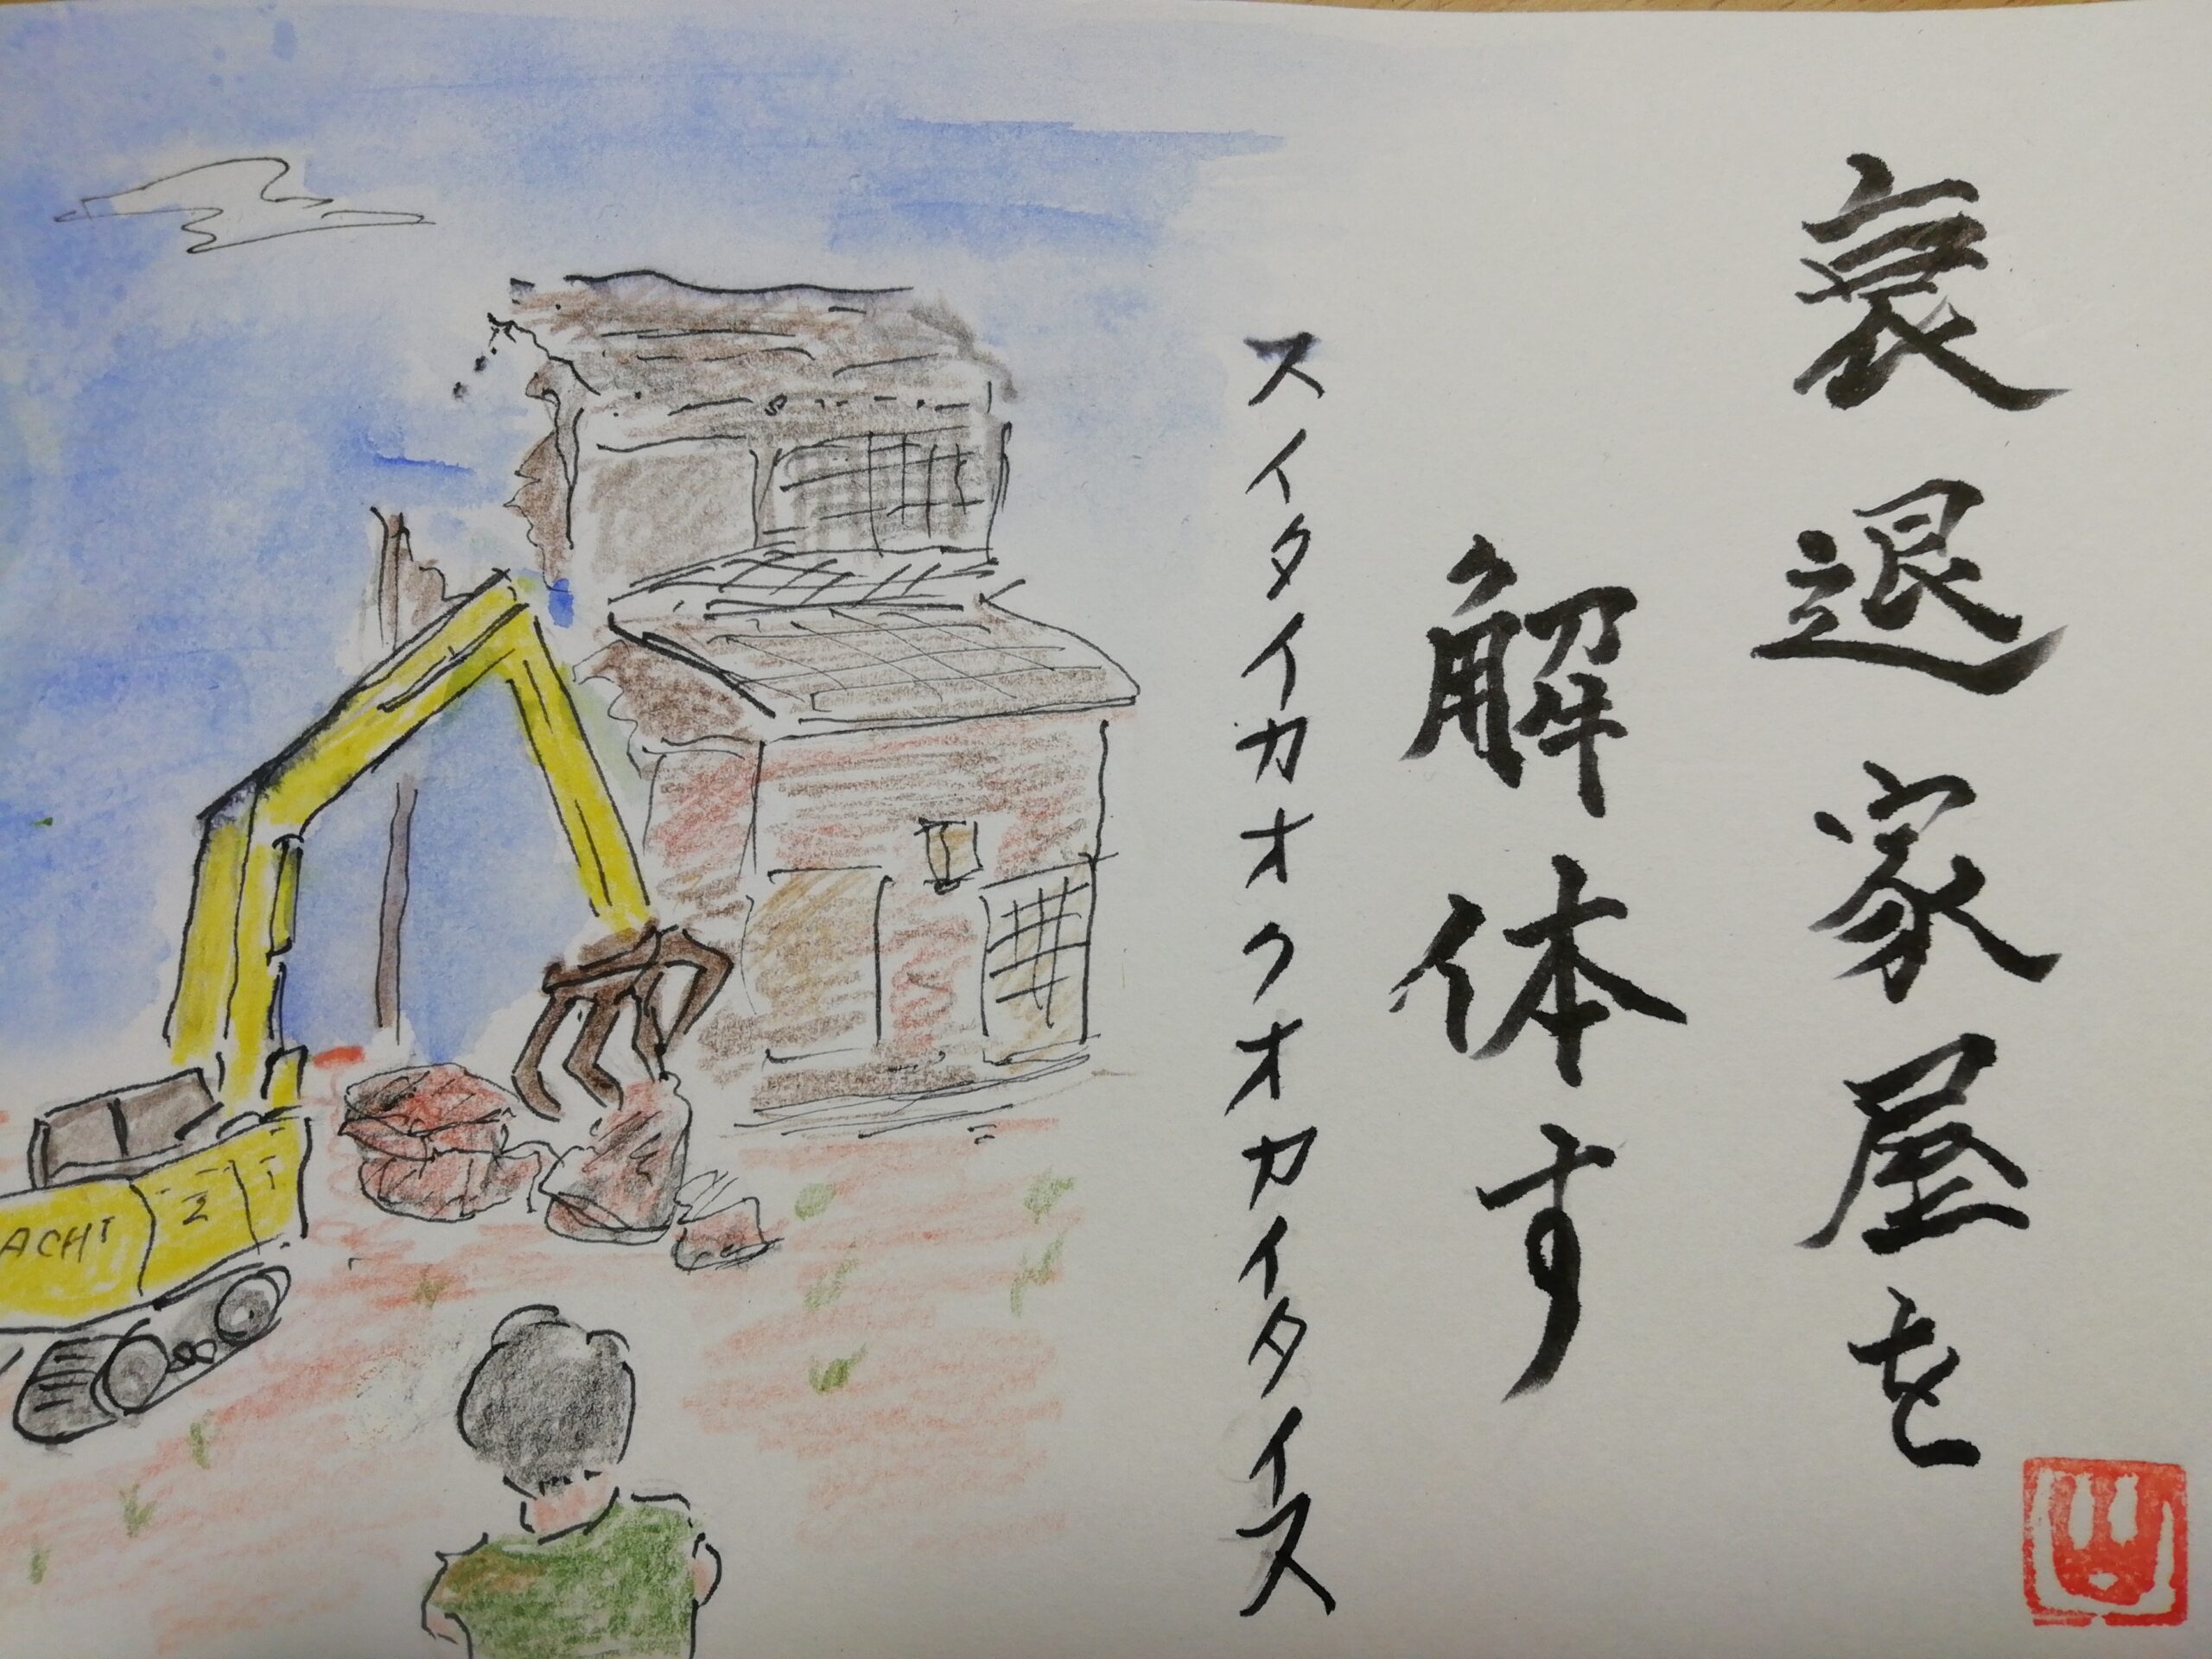 衰退家屋を
解体す
スイタイカオクオカイタイス
ACHI